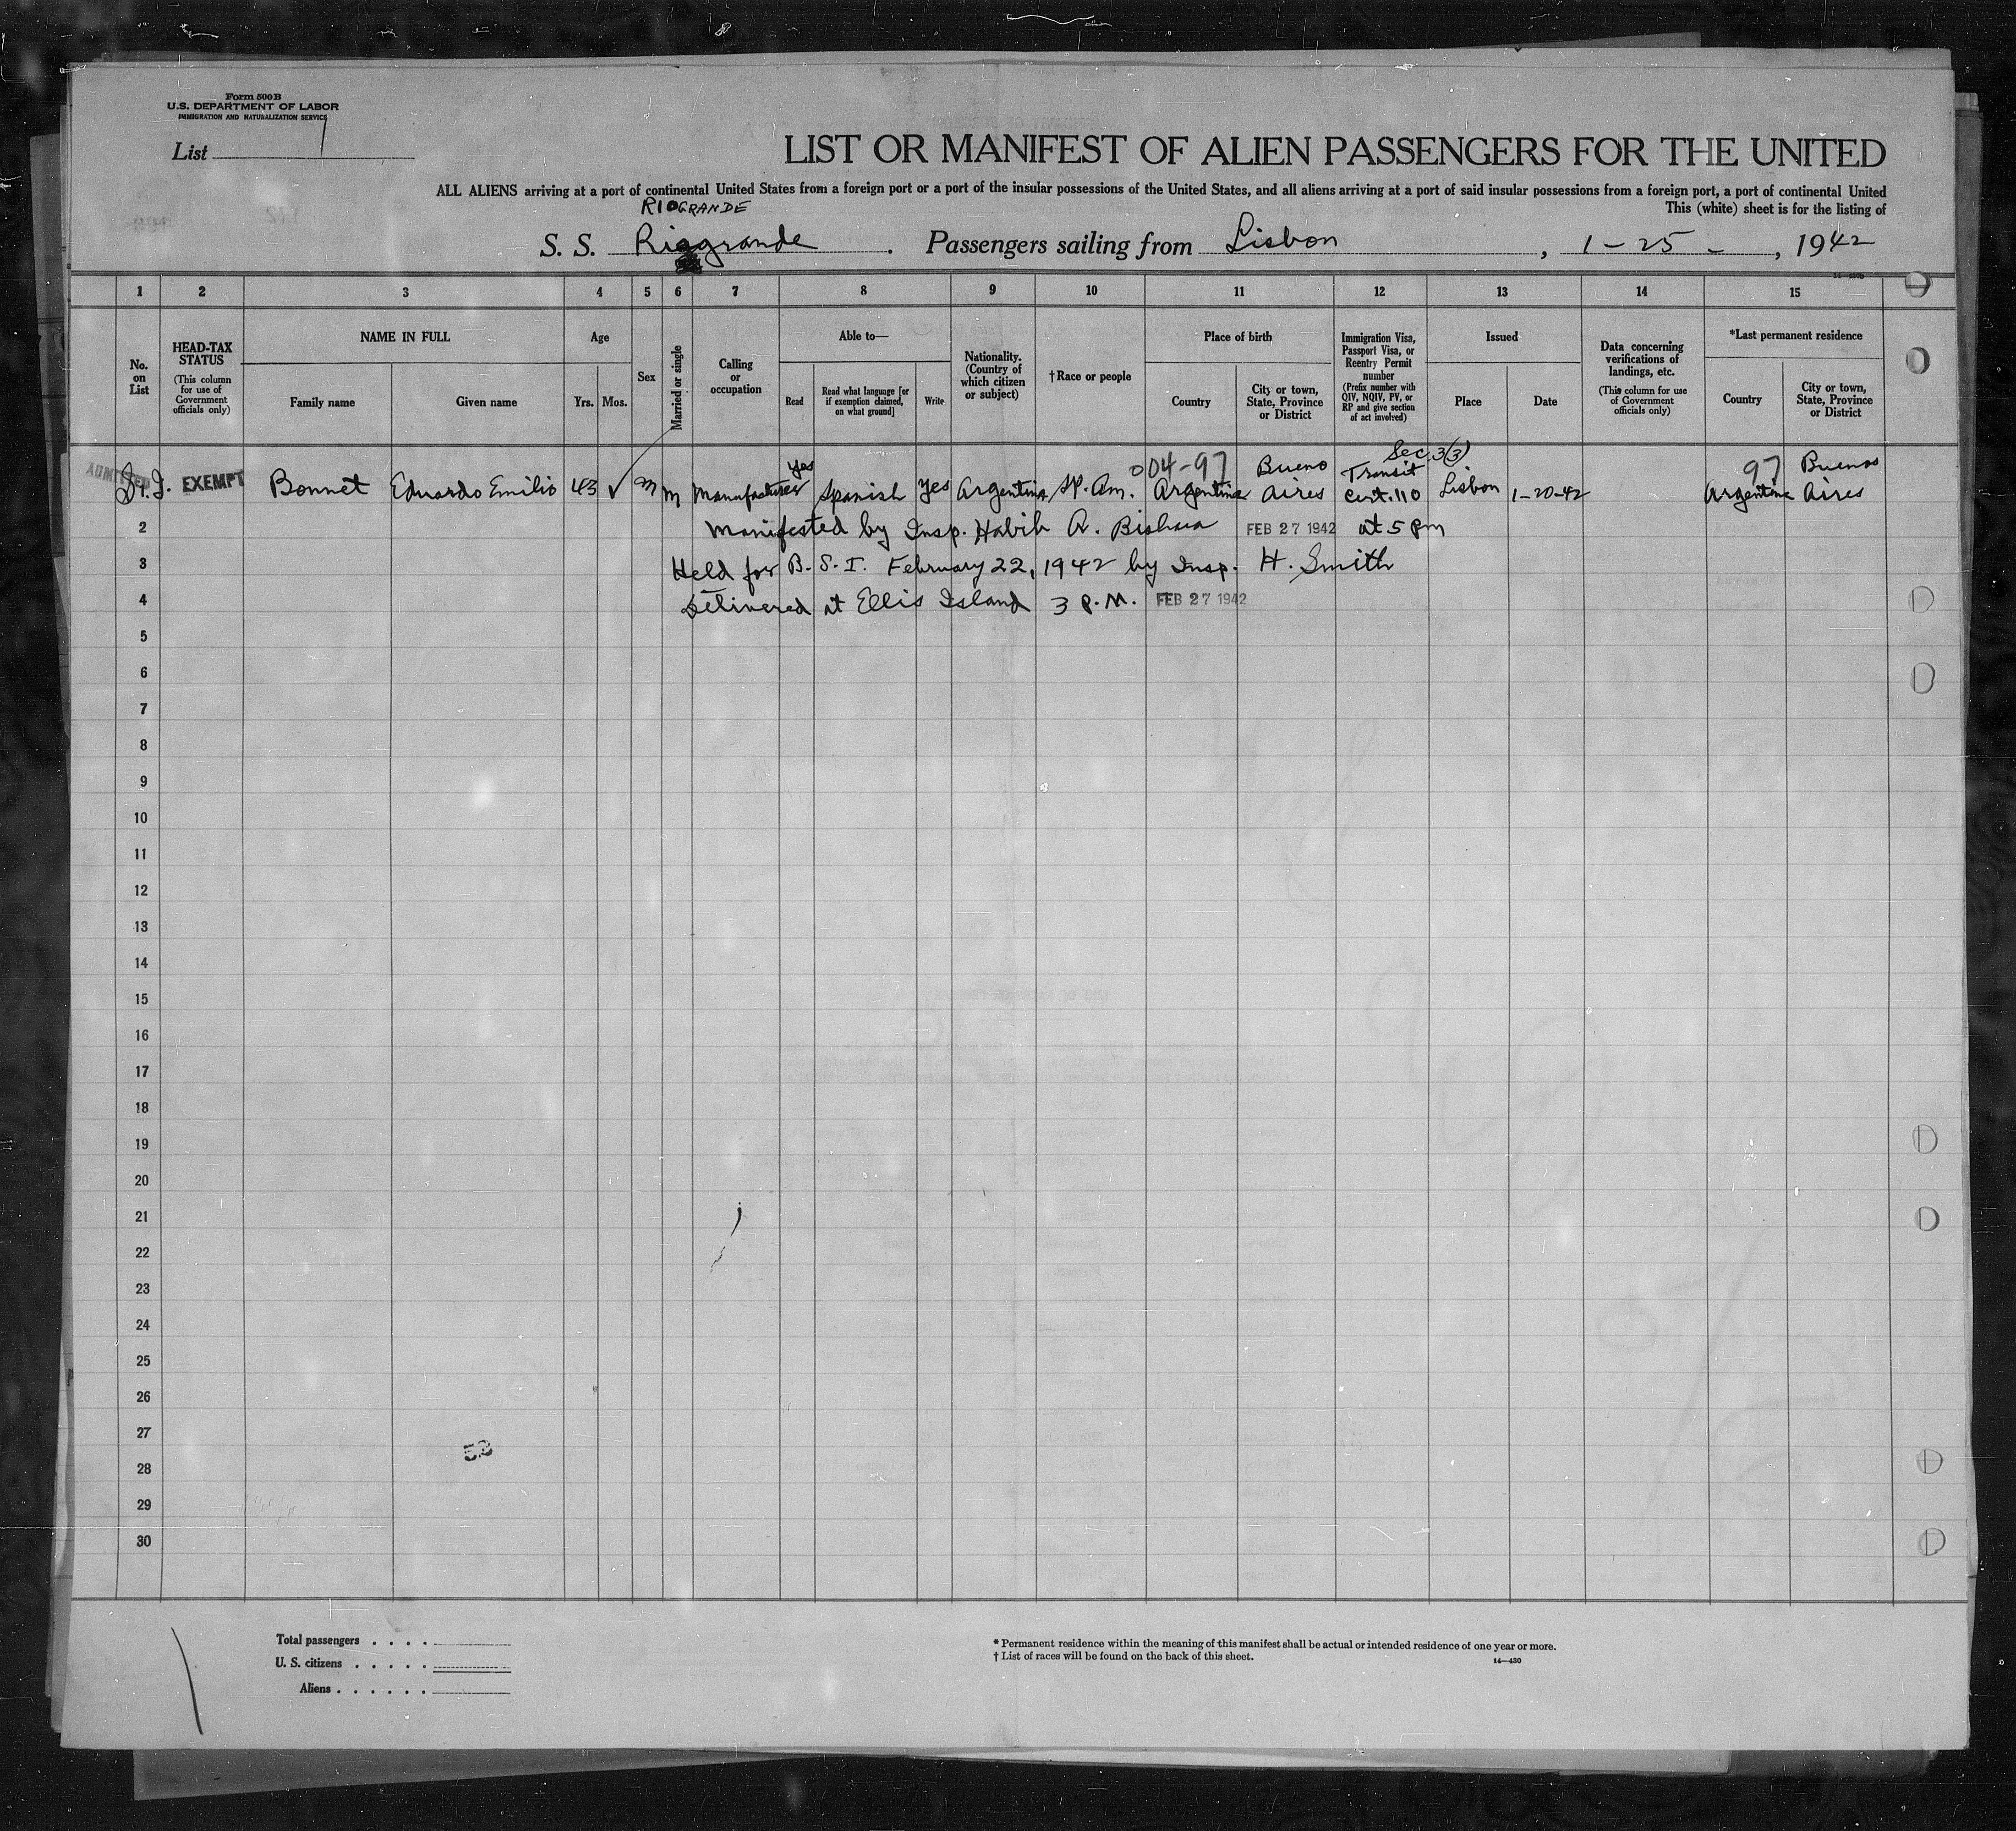 Form 500B
U.S. DEPARTMENT OF LABOR
IMMIGRATION AND NATURALIZATION SERVICE
List 1
LIST OR MANIFEST OF ALIEN PASSENGERS FOR THE UNITED
ALL ALIENS arriving at a port of continental United States from a foreign port or a port of the insular possessions of the United States, and all aliens arriving at a port of said insular possessions from a foreign port, a port of continental United
This (white) sheet is for the listing of
RIOGRANDE
S. S. Riogrande. Passengers sailing from Lisbon, 1-25-, 1942
1 2 3 4 5 6 7 8 9 10 11 12 13 14 15
No. on List
HEAD-TAX STATUS
(This column for use of Government officials only)
NAME IN FULL
Family name
Given name
Age
Yrs. Mos.
Sex
Married or single
Calling or occupation
Able to—
Read
Read what language [or if exemption claimed, on what ground]
Write
Nationality. (Country of which citizen or subject)
†Race or people
Place of birth
Country
City or town, State, Province or District
Immigration Visa, Passport Visa, or Reentry Permit number
(Prefix number with QIV, NQIV, PV, or RP and give section of act involved)
Issued
Place
Date
Data concerning verifications of landings, etc.
(This column for use of Government officials only)
*Last permanent residence
Country
City or town, State, Province or District
Sec. 3(3)
ADMITTED EXEMPT Bonnet Eduardo Emilio 43 ✓ M M Manufacturer yes Spanish yes Argentina Sp. Am. 004-97 Argentina Bueno Aires Transit Cert. 110 Lisbon 1-20-42 97 Argentine Buenos Aires
2 Manifested by Insp. Habib A. Bishara FEB 27 1942 at 5 pm
3 Held for B. S. I. February 22, 1942 by Insp. H. Smith
4 Delivered at Ellis Island 3 P.M. FEB 27 1942
5
6
7
8
9
10
11
12
13
14
15
16
17
18
19
20
21
22
23
24
25
26
27
28
29
30
53
Total passengers . . . .
U. S. citizens . . . . .
Aliens . . . . . .
* Permanent residence within the meaning of this manifest shall be actual or intended residence of one year or more.
† List of races will be found on the back of this sheet.
14—430